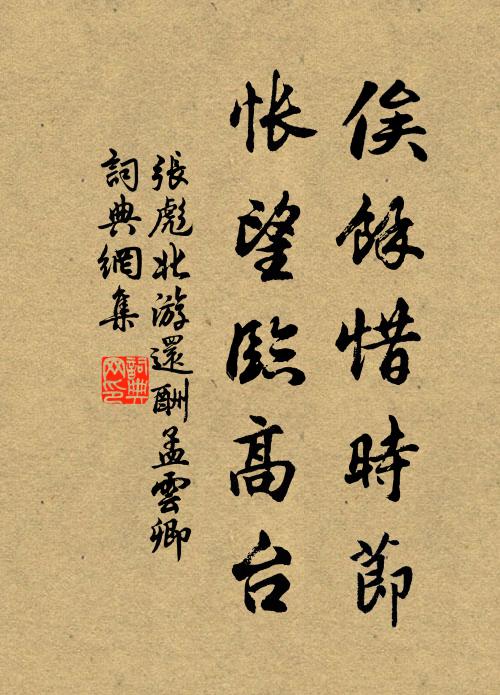 俟餘惜時節
悵望臨高台
張彪北游還酬孟雲卿
詞典網集
詞典
网印